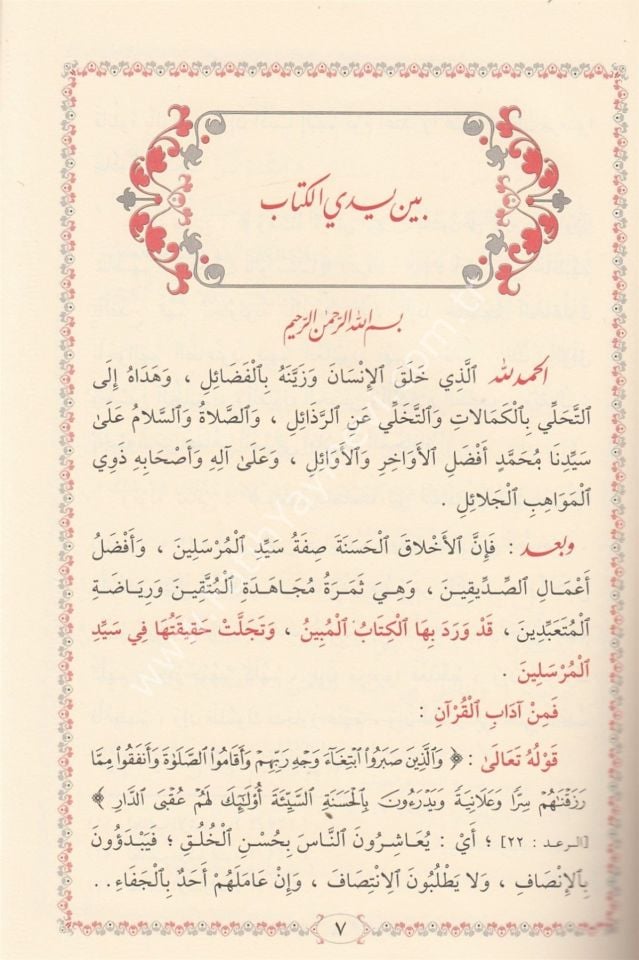 بين يدي الكتاب
بسم الله الرحمن الرحيم
الحمد لله الَّذِي خَلَقَ الْإِنْسَانَ وَزَيَّنَهُ بِالْفَضَائِلِ ، وَهَدَاهُ إِلَى
التَّحَلِّي بِالْكَمَالَاتِ وَالتَّخَلِّي عَنِ الرَّذَائِلِ ، وَالصَّلَاةُ وَالسَّلَامُ عَلَىٰ
سَيِّدِنَا مُحَمَّدٍ أَفْضَلِ الْأَوَاخِرِ وَالْأَوَائِلِ ، وَعَلَىٰ آلِهِ وَأَصْحَابِهِ ذَوِي
الْمَوَاهِبِ الْجَلَائِلِ .
وبعد : فَإِنَّ الْأَخْلَاقَ الْحَسَنَةَ صِفَةُ سَيِّدِ الْمُرْسَلِينَ ، وَأَفْضَلُ
أَعْمَالِ الصِّدِّيقِينَ ، وَهِيَ ثَمَرَةُ مُجَاهَدَةِ الْمُتَّقِينَ وَرِيَاضَةِ
الْمُتَعَبِّدِينَ ، قَدْ وَرَدَ بِهَا الْكِتَابُ الْمُبِينُ ، وَتَجَلَّتْ حَقِيقَتُهَا فِي سَيِّدِ
الْمُرْسَلِينَ .
فَمِنْ آدَابِ الْقُرْآنِ :
قَوْلُهُ تَعَالَىٰ : ﴿ وَالَّذِينَ صَبَرُوا ابْتِغَاءَ وَجْهِ رَبِّهِمْ وَأَقَامُوا الصَّلَوٰةَ وَأَنفَقُوا مِمَّا
رَزَقْنَٰهُمْ سِرًّا وَعَلَانِيَةً وَيَدْرَءُونَ بِالْحَسَنَةِ السَّيِّئَةَ أُولَٰئِكَ لَهُمْ عُقْبَى الدَّارِ ﴾
[الرعد : ٢٢] ؛ أَيْ : يُعَاشِرُونَ النَّاسَ بِحُسْنِ الْخُلُقِ ؛ فَيَبْدَؤُونَ
بِالْإِنْصَافِ ، وَلَا يَطْلُبُونَ الِانْتِصَافَ ، وَإِنْ عَامَلَهُمْ أَحَدٌ بِالْجَفَاءِ ..
٧